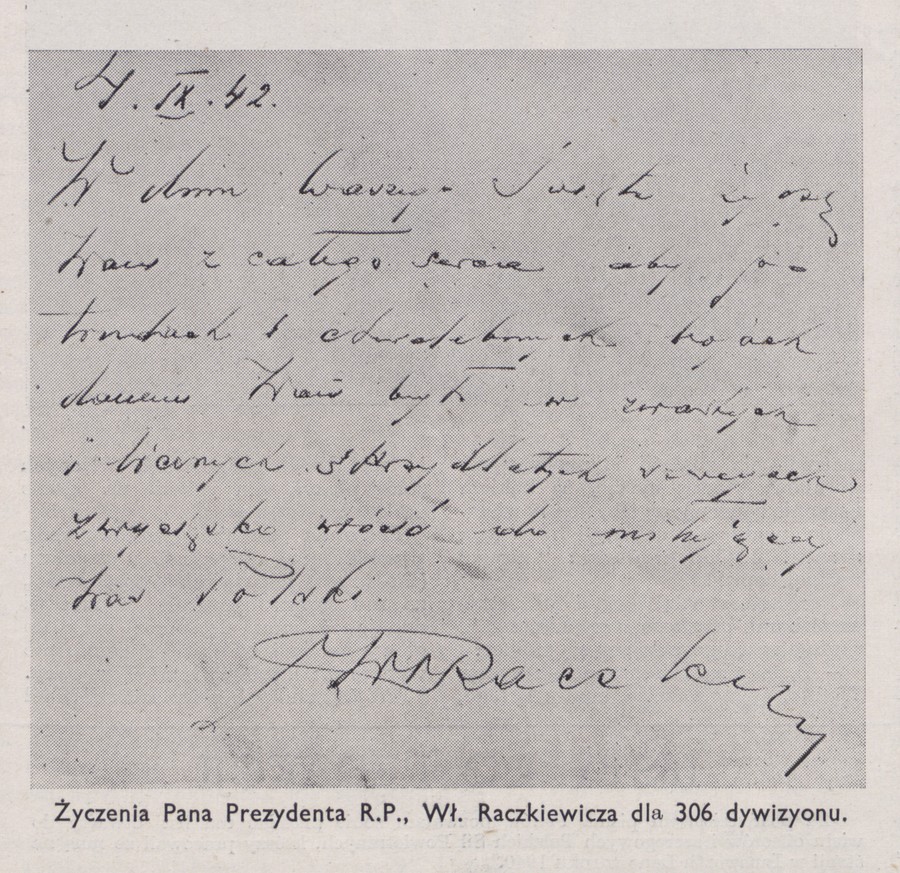 4. IX. 42.
W dniu Waszego Święta życzę
Wam z całego serca aby po
trudach i chwalebnych bojach
danem Wam było w zwartych
i licznych skrzydlatych szeregach
zwycięsko wrócić do miłującej
Was Polski.
Wł Raczkiewicz
Życzenia Pana Prezydenta R.P., Wł. Raczkiewicza dla 306 dywizyonu.